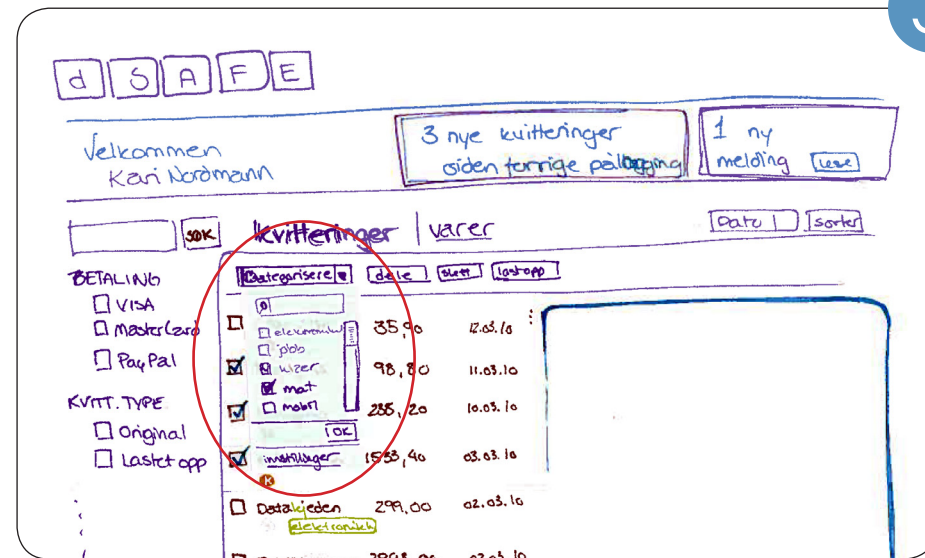 dSAFE
Velkommen
Kari Nordmann
3 nye kvitteringer
siden forrige pålogging
1 ny
melding Lese
SØK
kvitteringer | varer
Dato
Sorter
BETALING
VISA
MasterCard
PayPal
KVITT. TYPE
Original
Lastet opp
Kategorisere
dele
slett
last opp
jobb
mat
mobil
OK
innstillinger
K
35,90 12.03.10
98,80 11.03.10
235,20 10.03.10
1533,40 03.03.10
Datakjeden 299,00 02.03.10
elektronikk